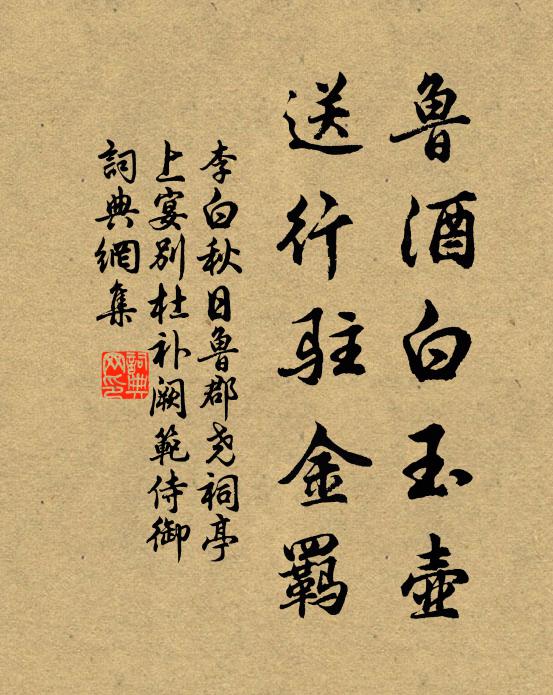 魯酒白玉壺
送行駐金羈
李白秋日魯郡尧祠亭
上宴別杜补阙範侍御
詞典網集
詞典
网印